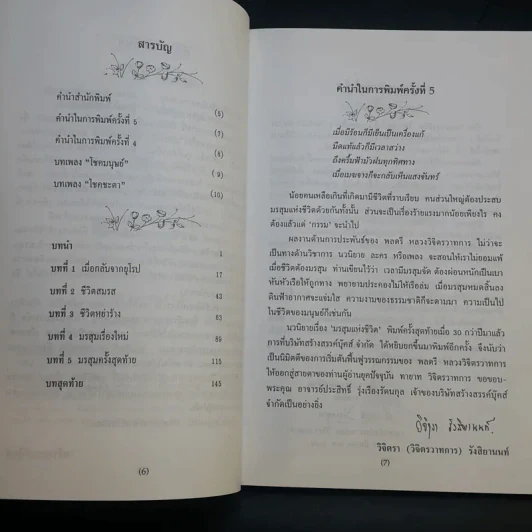 สารบัญ
คำนำสำนักพิมพ์ (5)
คำนำในการพิมพ์ครั้งที่ 5 (7)
คำนำในการพิมพ์ครั้งที่ 4 (9)
บทเพลง “โชคมนุษย์” (10)
บทเพลง “โชคชะตา”
บทนำ 1
บทที่ 1 เมื่อกลับจากยุโรป 17
บทที่ 2 ชีวิตสมรส 43
บทที่ 3 ชีวิตหย่าร้าง 63
บทที่ 4 มรสุมเรื่องใหม่ 89
บทที่ 5 มรสุมครั้งสุดท้าย 115
บทสุดท้าย 145
(6)
คำนำในการพิมพ์ครั้งที่ 5
เมื่อมีร้อนก็มีเย็นเป็นเครื่องแก้
มืดแท้แล้วก็มีเวลาสว่าง
ถึงครึ้มฟ้ามัวฝนทุกทิศทาง
เมื่อเมฆจางก็จะกลับเห็นแสงจันทร์
น้อยคนเหลือเกินที่เกิดมามีชีวิตที่ราบเรียบ คนส่วนใหญ่ต้องประสบ
มรสุมแห่งชีวิตด้วยกันทั้งนั้น ส่วนจะเป็นเรื่องร้ายแรงมากน้อยเพียงไร คง
ต้องแล้วแต่ ‘กรรม’ จะนำไป
ผลงานด้านการประพันธ์ของ พลตรี หลวงวิจิตรวาทการ ไม่ว่าจะ
เป็นทางด้านวิชาการ นวนิยาย ละคร หรือเพลง จะสอนให้เราไม่ยอมแพ้
เมื่อชีวิตต้องมรสุม ท่านเขียนไว้ว่า เวลามีมรสุมขัด ต้องผ่อนหนักเป็นเบา
หันหัวเรือให้ถูกทาง พยายามประคองไม่ให้เรือล่ม เมื่อมรสุมหมดสิ้นลง
คืนฟ้าอากาศจะแจ่มใส ความงามของธรรมชาติก็จะตามมา ความเป็นไป
ในชีวิตของมนุษย์ก็เช่นกัน
นวนิยายเรื่อง ‘มรสุมแห่งชีวิต’ พิมพ์ครั้งสุดท้ายเมื่อ 30 กว่าปีมาแล้ว
การที่บริษัทสร้างสรรค์บุ๊คส์ จำกัด ได้หยิบยกขึ้นมาพิมพ์อีกครั้ง จึงนับว่า
เป็นนิมิตดีของการเริ่มต้นฟื้นฟูวรรณกรรมของ พลตรี หลวงวิจิตรวาทการ
ให้ออกสู่สายตาของท่านผู้อ่านยุคปัจจุบัน ทายาท วิจิตรวาทการ ขอขอบ-
พระคุณ อาจารย์ประสิทธิ์ รุ่งเรืองรัตนกุล เจ้าของบริษัทสร้างสรรค์บุ๊คส์
จำกัดเป็นอย่างยิ่ง
วิจิตรา รังสิยานนท์
วิจิตรา (วิจิตรวาทการ) รังสิยานนท์
(7)